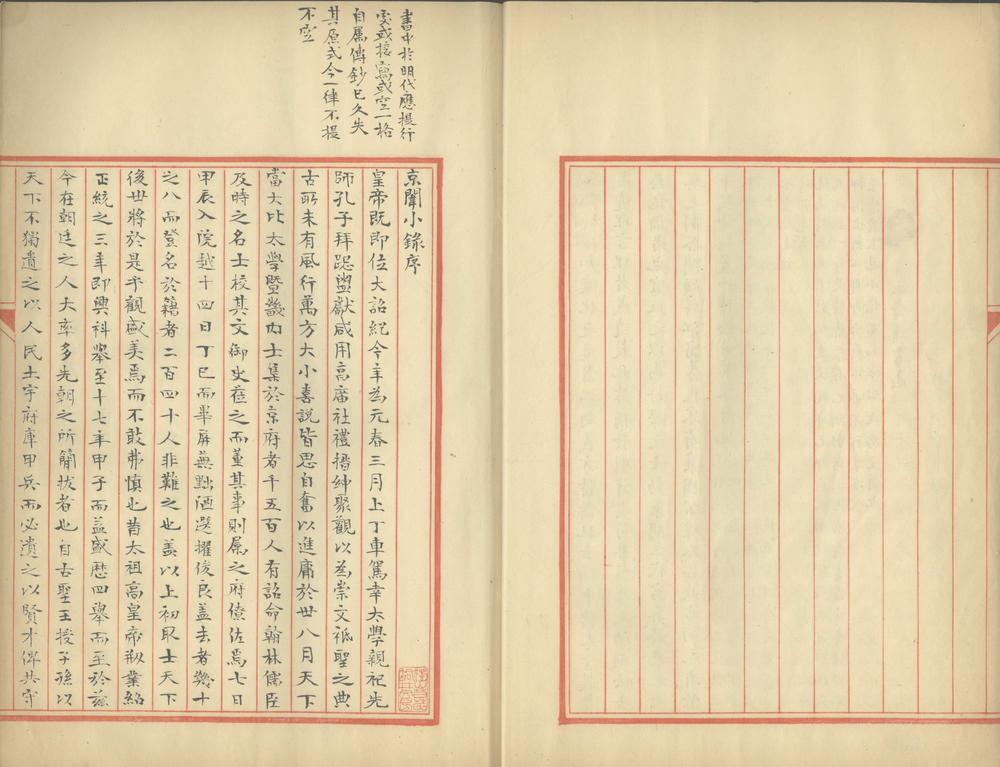 書中於明代應提行
處或接寫或空一格
自屬傳鈔已久失
其原式今一律不提
不空
京闈小錄序
皇帝既即位大詔紀今年為元春三月上丁車駕幸太學親祀先
師孔子拜跽盥獻咸用高廟社禮搢紳聚觀以為崇文祗聖之典
古所未有風行萬方大小喜說皆思自奮以進庸於世八月天下
當大比太學暨畿內士集於京府者千五百人有詔命翰林儒臣
及時之名士校其文御史蒞之而董其事則屬之府僚佐焉七日
甲辰入院越十四日丁巳而畢屏蕪黜陋選擢俊良蓋去者幾十
之八而登名於籍者二百四十人非難之也蓋以上初取士天下
後世將於是乎觀盛美焉而不敢弗慎也昔太祖高皇帝刱業紹
正統之三年即興科舉至十七年甲子而益盛歷四舉而至於茲
今在朝廷之人大率多先朝之所簡拔者也自古聖王授子孫以
天下不獨遺之以人民土宇府庫甲兵而必遺之以賢才俾共守